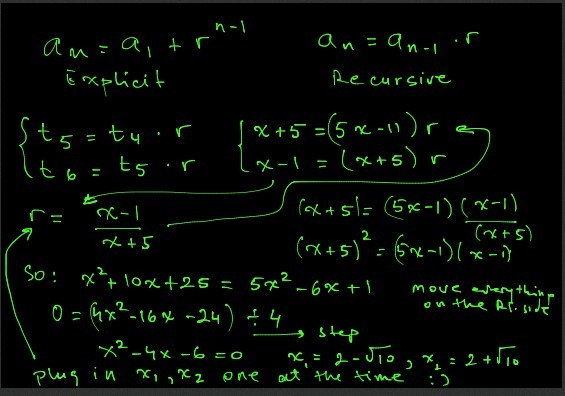 aₙ = a₁ + rⁿ⁻¹
Explicit
aₙ = aₙ₋₁ · r
Recursive
t₅ = t₄ · r
t₆ = t₅ · r
x+5 = (5x-11) r
x-1 = (x+5) r
r = (x-1)/(x+5)
(x+5) = (5x-1) (x-1)/(x+5)
(x+5)² = (5x-1)(x-1)
So: x²+10x+25 = 5x²-6x+1
move everything
on the Rt. side
0 = (4x²-16x-24) ÷ 4
step
x²-4x-6=0
x₁ = 2-√10, x₂ = 2+√10
plug in x₁, x₂ one at the time :)